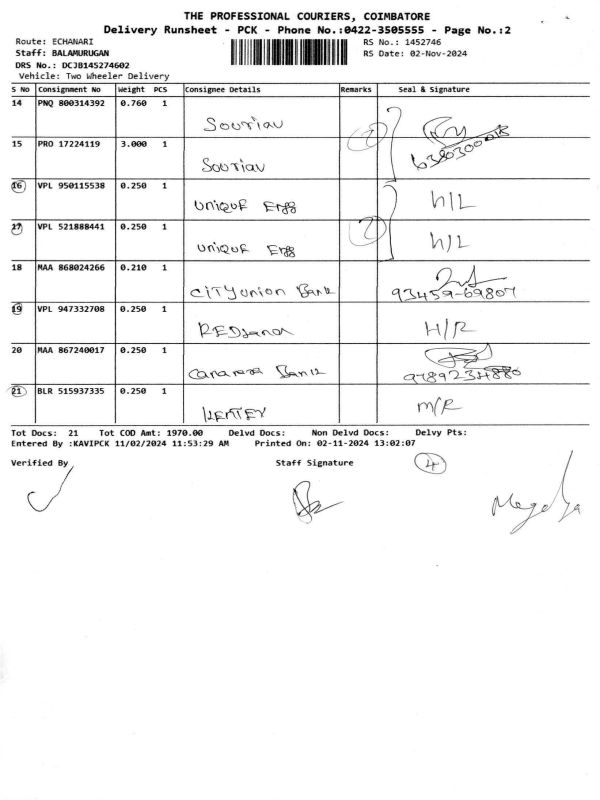 THE PROFESSIONAL COURIERS, COIMBATORE
Delivery Runsheet - PCK - Phone No.:0422-3505555 - Page No.:2
Route: ECHANARI RS No.: 1452746
Staff: BALAMURUGAN RS Date: 02-Nov-2024
DRS No.: DCJB145274602
Vehicle: Two Wheeler Delivery
S No Consignment No Weight PCS Consignee Details Remarks Seal & Signature
14 PNQ 800314392 0.760 1 Souriau
15 PRO 17224119 3.000 1 Souriau 2
16 VPL 950115538 0.250 1 UNIQUE Engg H/L
17 VPL 521888441 0.250 1 UNIQUE Engg 2 H/L
18 MAA 868024266 0.210 1 CITY union Bank 93459-69807
19 VPL 947332708 0.250 1 H/R
20 MAA 867240017 0.250 1 canara Bank 9789234880
21 BLR 515937335 0.250 1 M/R
Tot Docs: 21 Tot COD Amt: 1970.00 Delvd Docs: Non Delvd Docs: Delvy Pts:
Entered By :KAVIPCK 11/02/2024 11:53:29 AM Printed On: 02-11-2024 13:02:07
Verified By Staff Signature 4